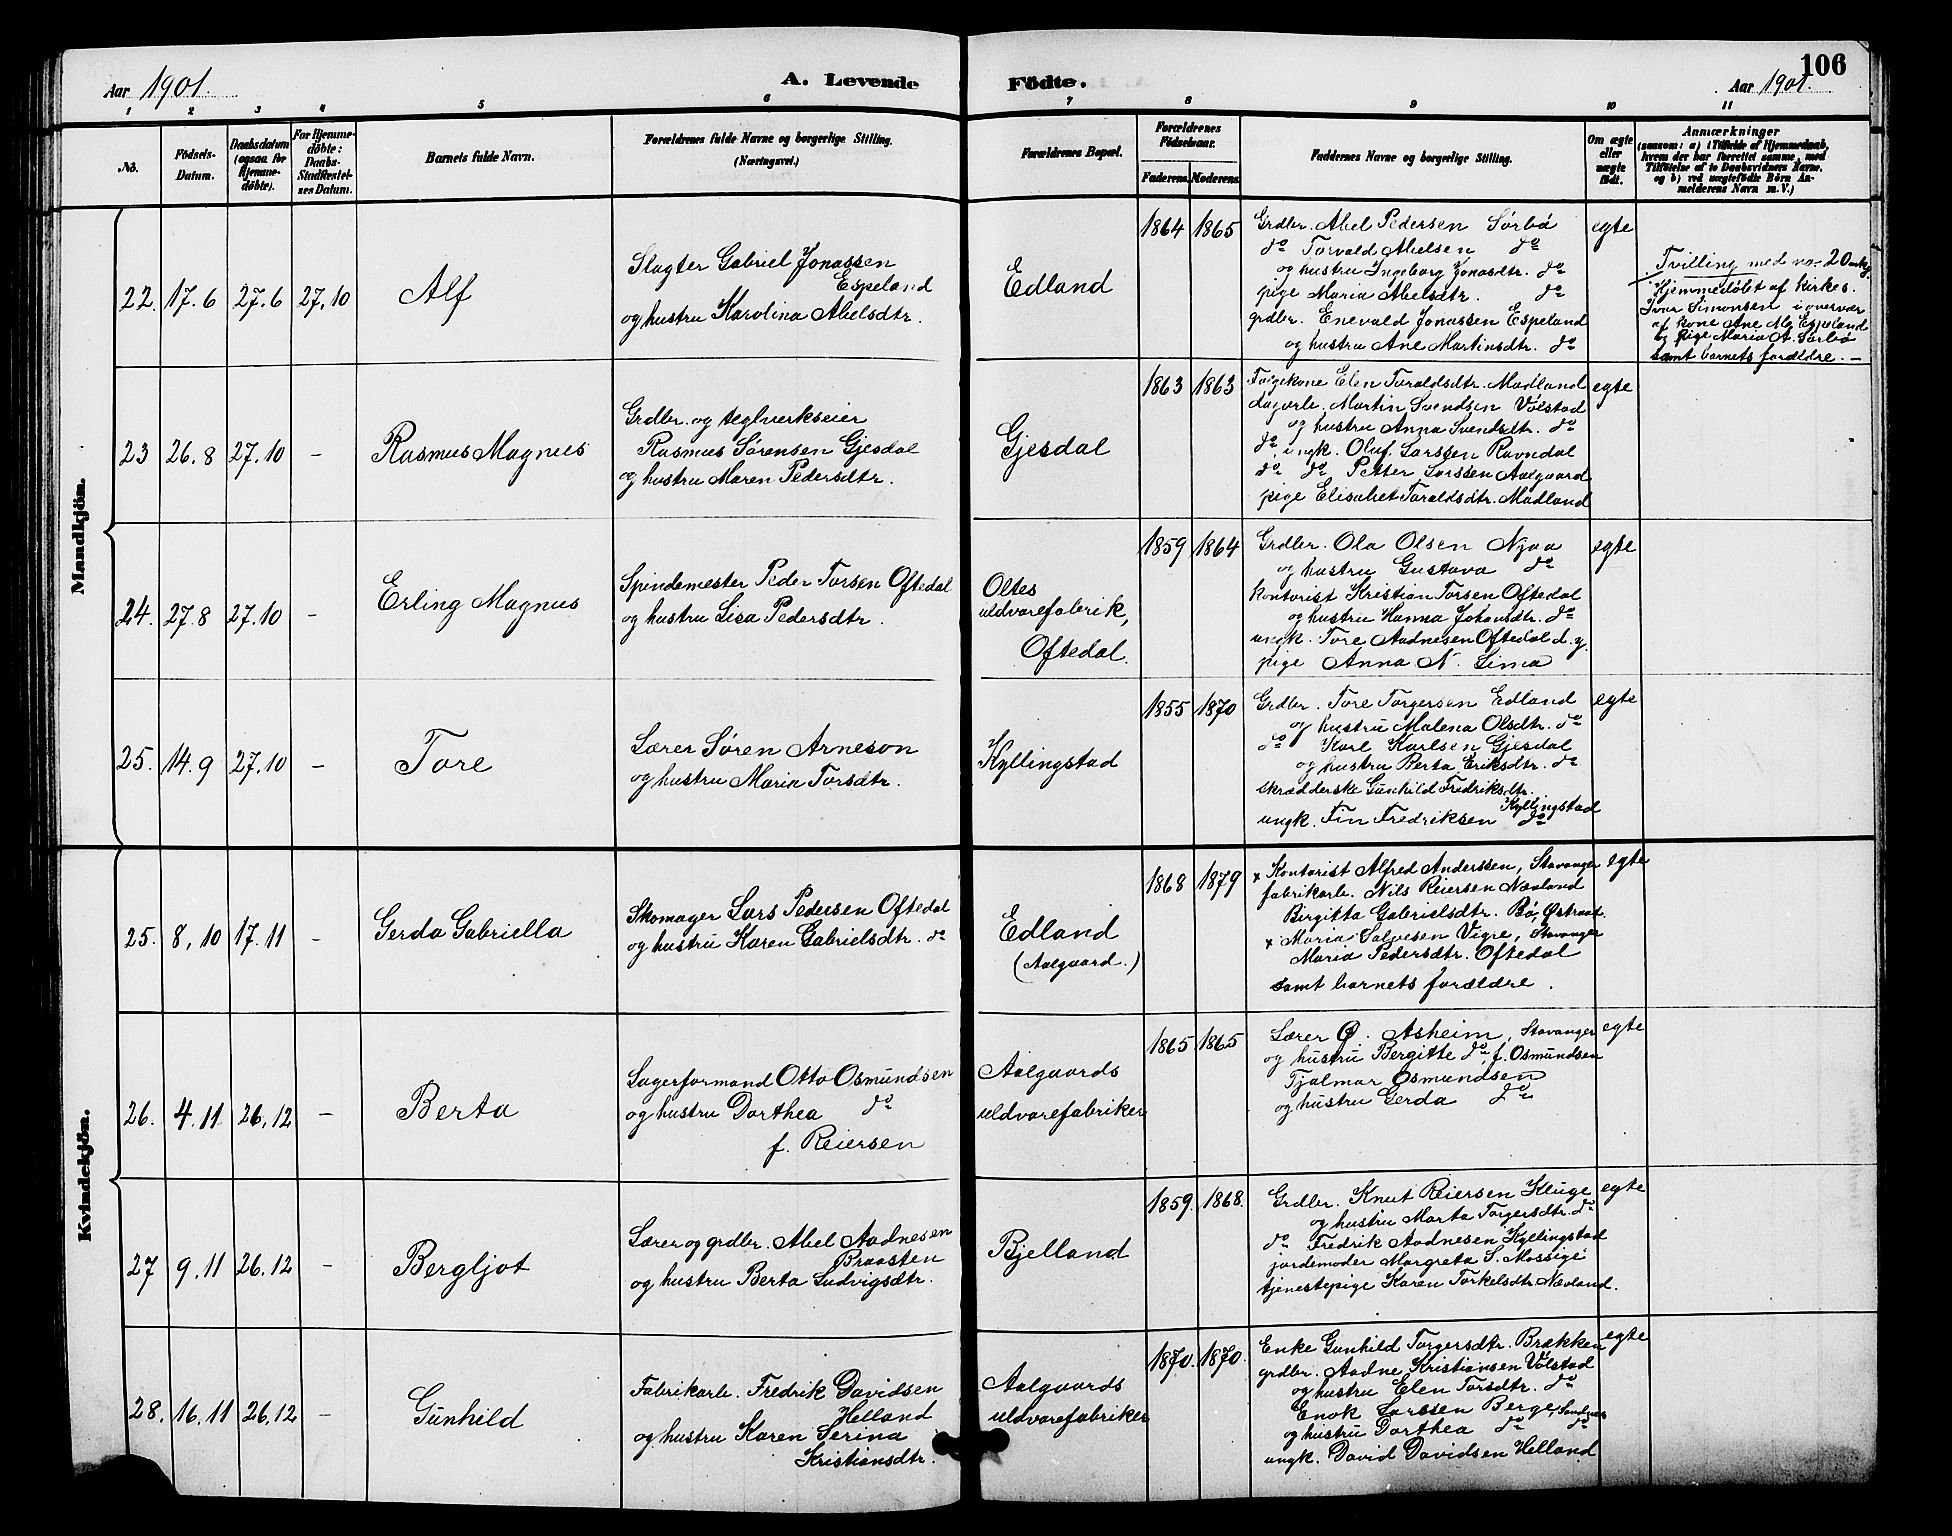 106
Aar 1901.
A. Levende
Fødte.
Aar 1901.
1 2 3 4 5 6 7 8 9 10 11
No.
Fødsels-
Datum.
Daabsdatum
(ogsaa for
Hjemme-
døbte).
For Hjemme-
døbte:
Daabs-
Stadfæstel-
ses Datum.
Barnets fulde Navn.
Forældrenes fulde Navne og borgerlige Stilling.
(Næringsvei.)
Forældrenes Bopæl.
Forældrenes
Fødselsaar.
Faderens. Moderens.
Faddernes Navne og borgerlige Stilling.
Om ægte
eller
uægte
født.
Anmærkninger
(saasom: a) i Tilfælde af Hjemmedaab,
hvem der har forrettet samme, med
Tilføielse af to Daabsvidners Navne,
og b) ved uægtefødte Børn An-
melderens Navn m. V.)
Mandkjön.
22. 17.6 27.6 27,10
Alf
Slagter Gabriel Jonassen
Espeland
og hustru Karolina Abelsdtr.
Edland
1864 1865
Grdbr. Abel Pedersen Sørbø
do Torvald Abelsen do
og hustru Ingeborg Jonasdtr. do
pige Maria Abelsdtr. do
grdbr. Enevald Jonassen Espeland
og hustru Ane Martinsdtr. do
egte
Tvilling med no 20
Hjemmedøbt af kirkes.
Ivar Simonsen i overvær
af kone Ane M. Espeland
og pige Maria A. Sørbø
samt barnets forældre. –
23 26.8 27.10 –
Rasmus Magnus
Grdbr. og teglverkseier
Rasmus Sørensen Gjesdal
og hustru Maren Pedersdtr.
Gjesdal
1863 1863
Elen Toraldsdtr. Madland
dagarb. Martin Svendsen Vølstad
og hustru Anna Svendsdtr. do
do, ungk. Oluf Larssen Ravndal
do do Petter Larssen Aalgaard
pige Elisabet Toraldsdtr. Madland
egte
24. 27.8 27.10 –
Erling Magnus
Spindemester Peder Torsen Oftedal
og hustru Lisa Pedersdtr.
Oltes
uldvarefabrik,
Oftedal.
1859 1864
Grdbr. Ola Olsen Njaa
og hustru Gustava do
kontorist Kristian Torsen Oftedal
og hustru Hanna Johansdtr. do
ungk. Tore Aadnesen Oftedal d.y.
pige Anna N. Lima
egte
25. 14.9 27.10 –
Tore
Lærer Søren Arneson
og hustru Maria Torsdtr.
Kyllingstad
1855 1870
Grdbr. Tore Torgersen Edland
og hustru Malena Olsdtr. do
do Karl Karlsen Gjesdal
og hustru Berta Eriksdtr. do
skrædderske Gunhild Fredriksdtr.
Kyllingstad
ungk. Fin Fredriksen do
egte
Kvindekjön.
25. 8,10 17.11 –
Gerda Gabriella
Skomager Lars Pedersen Oftedal
og hustru Karen Gabrielsdtr. do
Edland
(Aalgaard.)
1868 1879
x Kontorist Alfred Anderssen, Stavanger
fabrikarb. Nils Reiersen Nævland
Birgitta Gabrielsdtr. Bø, Østraat.
x Maria Salvesen Vigre, Stavanger
Maria Pedersdtr. Oftedal
samt barnets forældre.
egte
26. 4.11 26,12 –
Berta
Lagerformand Otto Osmundsen
og hustru Dorthea do
f. Reiersen
Aalgaards
uldvarefabriker
1865 1865
Lærer Ø. Asheim, Stavanger
og hustru Bergitte do, f. Osmundsen
Tjalmar Osmundsen
og hustru Gerda do
egte
27 9.11 26.12 –
Bergljot
Lærer og grdbr. Abel Aadnesen
Braasten
og hustru Berta Ludvigsdtr.
Bjelland
1859. 1868.
Grdbr. Knut Reiersen Kluge
og hustru Marta Torgersdtr. do
do Fredrik Aadnesen Kyllingstad
jordemoder Margreta S. Mossige
tjenestepige Karen Torkelsdtr. Nævland.
egte
28. 16.11 26.12 –
Gunhild
Fabrikarb. Fredrik Davidsen
Helland
og hustru Karen Serina
Kristiansdtr.
Aalgaards
uldvarefabriker
1870. 1870.
Enke Gunhild Torgersdtr. Brækken
grdbr. Aadne Kristiansen Vølstad
og hustru Elen Torsdtr. do
Enok Larssen Berge, Sandnes
og hustru Dorthea do do
ungk. David Davidsen Helland
egte